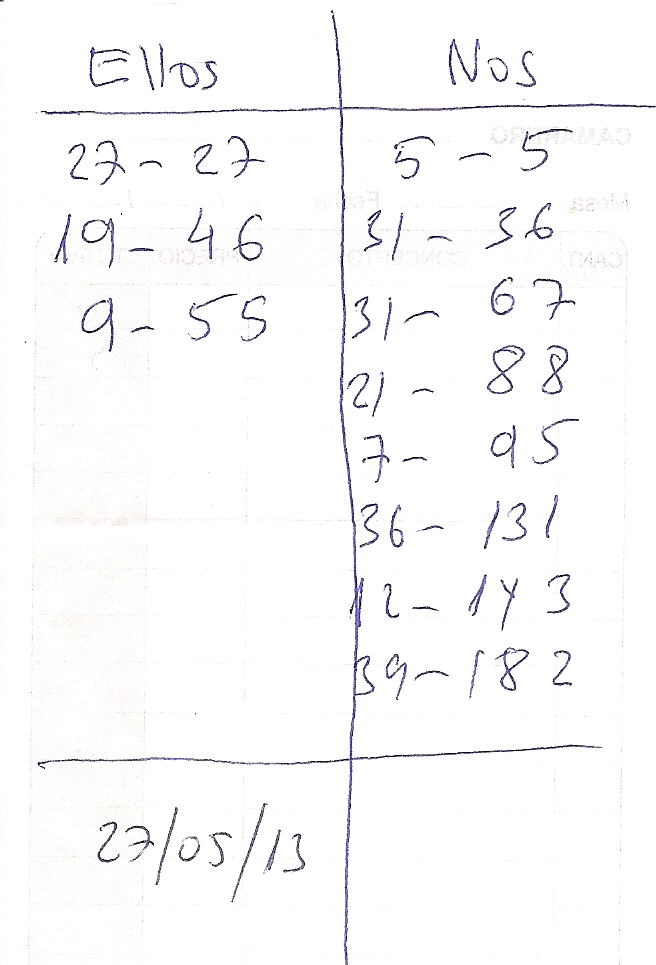 Ellos Nos
27 - 27 5 - 5
19 - 46 31 - 36
9 - 55 31 - 67
21 - 88
7 - 95
36 - 131
12 - 143
39 - 182
27/05/13
CAMARERO
Mesa Fecha / /
CANT. CONCEPTO PRECIO